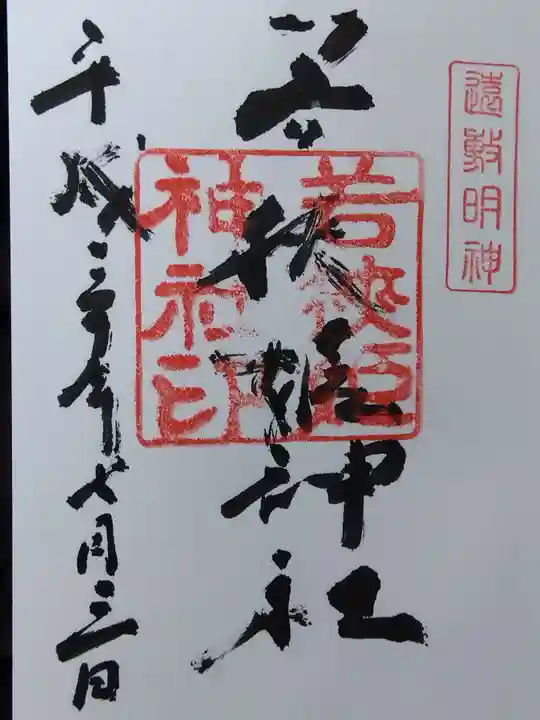 遠敷明神
若狭姫神社
若狭姫
神社印
平成三十年七月三日